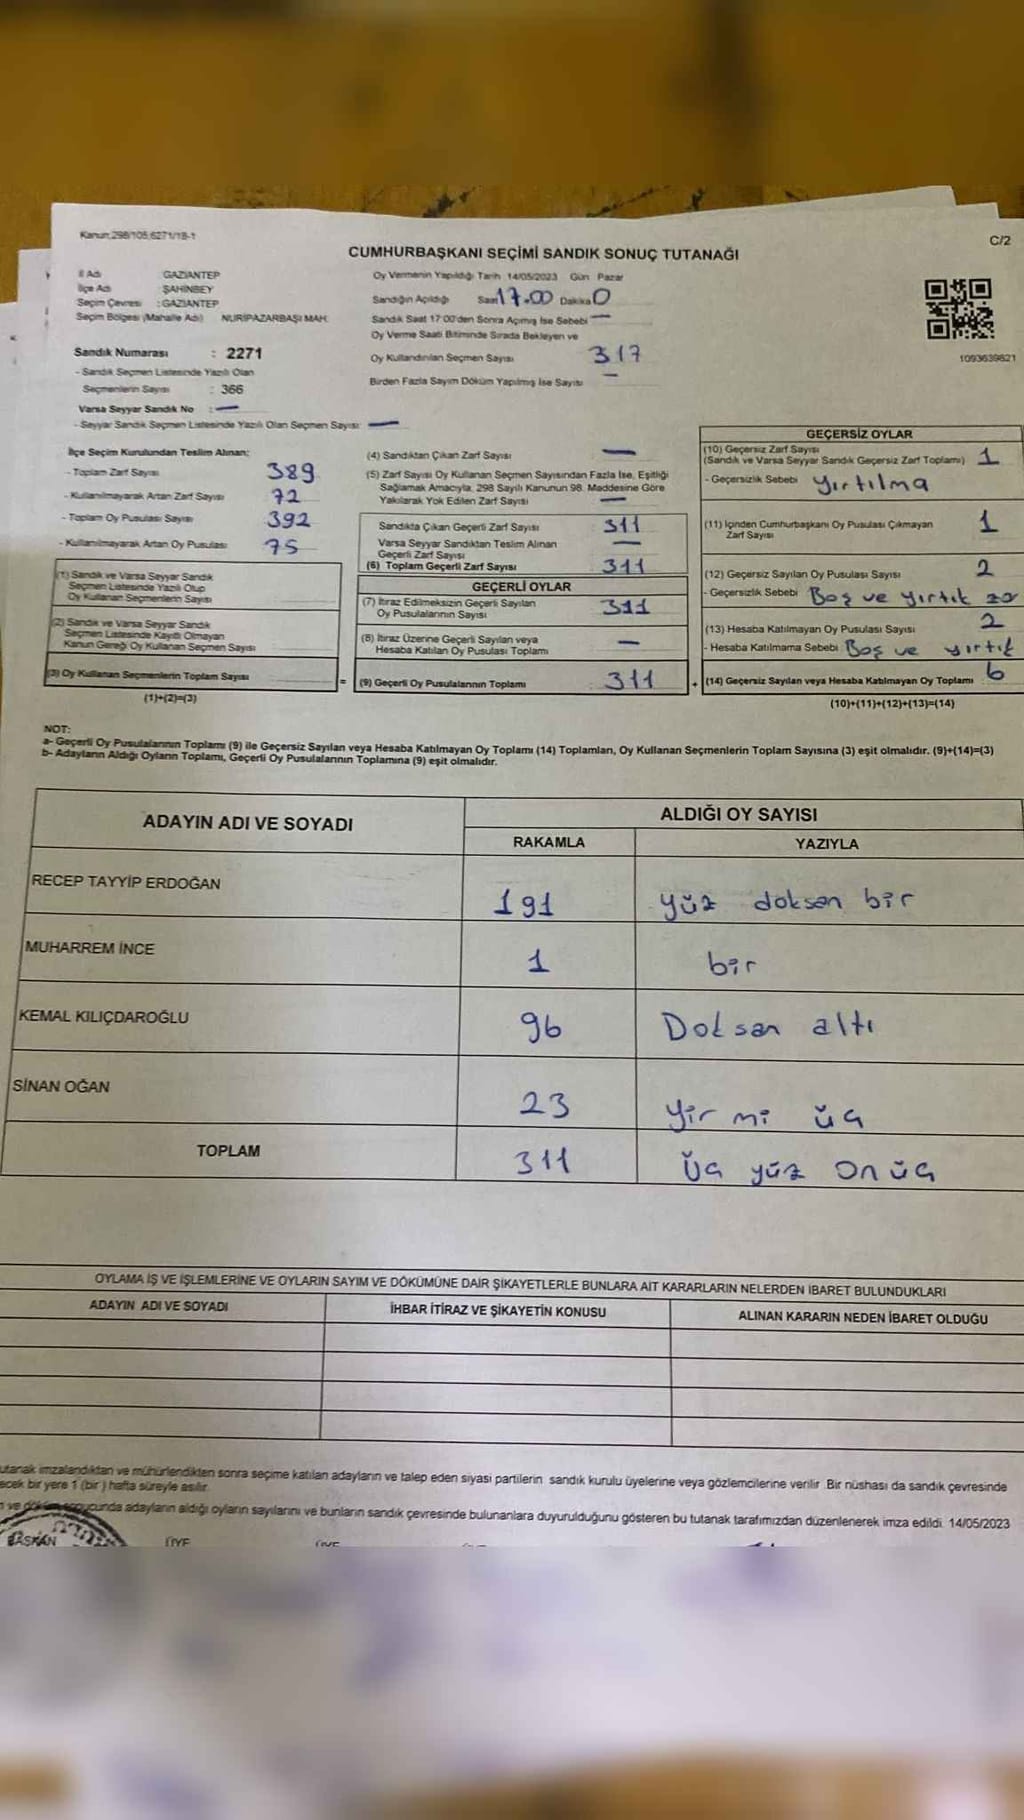 Kanun:298/105,6271/18-1
C/2
CUMHURBAŞKANI SEÇİMİ SANDIK SONUÇ TUTANAĞI
İl Adı : GAZİANTEP
İlçe Adı : ŞAHİNBEY
Seçim Çevresi : GAZİANTEP
Seçim Bölgesi (Mahalle Adı) NURİPAZARBAŞI MAH.
Sandık Numarası : 2271
- Sandık Seçmen Listesinde Yazılı Olan
Seçmenlerin Sayısı : 366
Varsa Seyyar Sandık No : —
- Seyyar Sandık Seçmen Listesinde Yazılı Olan Seçmen Sayısı: —
Oy Vermenin Yapıldığı Tarih 14/05/2023 Gün Pazar
Sandığın Açıldığı Saat 17.00 Dakika 0
Sandık Saat 17:00'den Sonra Açılmış İse Sebebi —
Oy Verme Saati Bitiminde Sırada Bekleyen ve
Oy Kullandırılan Seçmen Sayısı 317
Birden Fazla Sayım Döküm Yapılmış İse Sayısı —
1093639821
İlçe Seçim Kurulundan Teslim Alınan:
- Toplam Zarf Sayısı 389
- Kullanılmayarak Artan Zarf Sayısı 72
- Toplam Oy Pusulası Sayısı 392
- Kullanılmayarak Artan Oy Pusulası 75
(1) Sandık ve Varsa Seyyar Sandık
Seçmen Listesinde Yazılı Olup
Oy Kullanan Seçmenlerin Sayısı
(2) Sandık ve Varsa Seyyar Sandık
Seçmen Listesinde Kayıtlı Olmayan
Kanun Gereği Oy Kullanan Seçmen Sayısı
(3) Oy Kullanan Seçmenlerin Toplam Sayısı =
(1)+(2)=(3)
(4) Sandıktan Çıkan Zarf Sayısı —
(5) Zarf Sayısı Oy Kullanan Seçmen Sayısından Fazla İse, Eşitliği
Sağlamak Amacıyla; 298 Sayılı Kanunun 98. Maddesine Göre
Yakılarak Yok Edilen Zarf Sayısı —
Sandıkta Çıkan Geçerli Zarf Sayısı 311
Varsa Seyyar Sandıktan Teslim Alınan
Geçerli Zarf Sayısı —
(6) Toplam Geçerli Zarf Sayısı 311
GEÇERLİ OYLAR
(7) İtiraz Edilmeksizin Geçerli Sayılan
Oy Pusulalarının Sayısı 311
(8) İtiraz Üzerine Geçerli Sayılan veya
Hesaba Katılan Oy Pusulası Toplamı —
(9) Geçerli Oy Pusulalarının Toplamı 311 +
GEÇERSİZ OYLAR
(10) Geçersiz Zarf Sayısı
(Sandık ve Varsa Seyyar Sandık Geçersiz Zarf Toplamı) 1
- Geçersizlik Sebebi Yırtılma
(11) İçinden Cumhurbaşkanı Oy Pusulası Çıkmayan
Zarf Sayısı 1
(12) Geçersiz Sayılan Oy Pusulası Sayısı 2
- Geçersizlik Sebebi Boş ve yırtık
(13) Hesaba Katılmayan Oy Pusulası Sayısı 2
- Hesaba Katılmama Sebebi Boş ve yırtık
(14) Geçersiz Sayılan veya Hesaba Katılmayan Oy Toplamı 6
(10)+(11)+(12)+(13)=(14)
NOT:
a- Geçerli Oy Pusulalarının Toplamı (9) ile Geçersiz Sayılan veya Hesaba Katılmayan Oy Toplamı (14) Toplamları, Oy Kullanan Seçmenlerin Toplam Sayısına (3) eşit olmalıdır. (9)+(14)=(3)
b- Adayların Aldığı Oyların Toplamı, Geçerli Oy Pusulalarının Toplamına (9) eşit olmalıdır.
ADAYIN ADI VE SOYADI ALDIĞI OY SAYISI
RAKAMLA YAZIYLA
RECEP TAYYİP ERDOĞAN 191 yüz doksan bir
MUHARREM İNCE 1 bir
KEMAL KILIÇDAROĞLU 96 Doksan altı
SİNAN OĞAN 23 yirmi üç
TOPLAM 311 üç yüz on üç
OYLAMA İŞ VE İŞLEMLERİNE VE OYLARIN SAYIM VE DÖKÜMÜNE DAİR ŞİKAYETLERLE BUNLARA AİT KARARLARIN NELERDEN İBARET BULUNDUKLARI
ADAYIN ADI VE SOYADI İHBAR İTİRAZ VE ŞİKAYETİN KONUSU ALINAN KARARIN NEDEN İBARET OLDUĞU
utanak imzalandıktan ve mühürlendikten sonra seçime katılan adayların ve talep eden siyasi partilerin sandık kurulu üyelerine veya gözlemcilerine verilir. Bir nüshası da sandık çevresinde
ecek bir yere 1 (bir) hafta süreyle asılır.
ve döküm sonucunda adayların aldığı oyların sayılarını ve bunların sandık çevresinde bulunanlara duyurulduğunu gösteren bu tutanak tarafımızdan düzenlenerek imza edildi. 14/05/2023
BAŞKAN ÜYE ÜYE